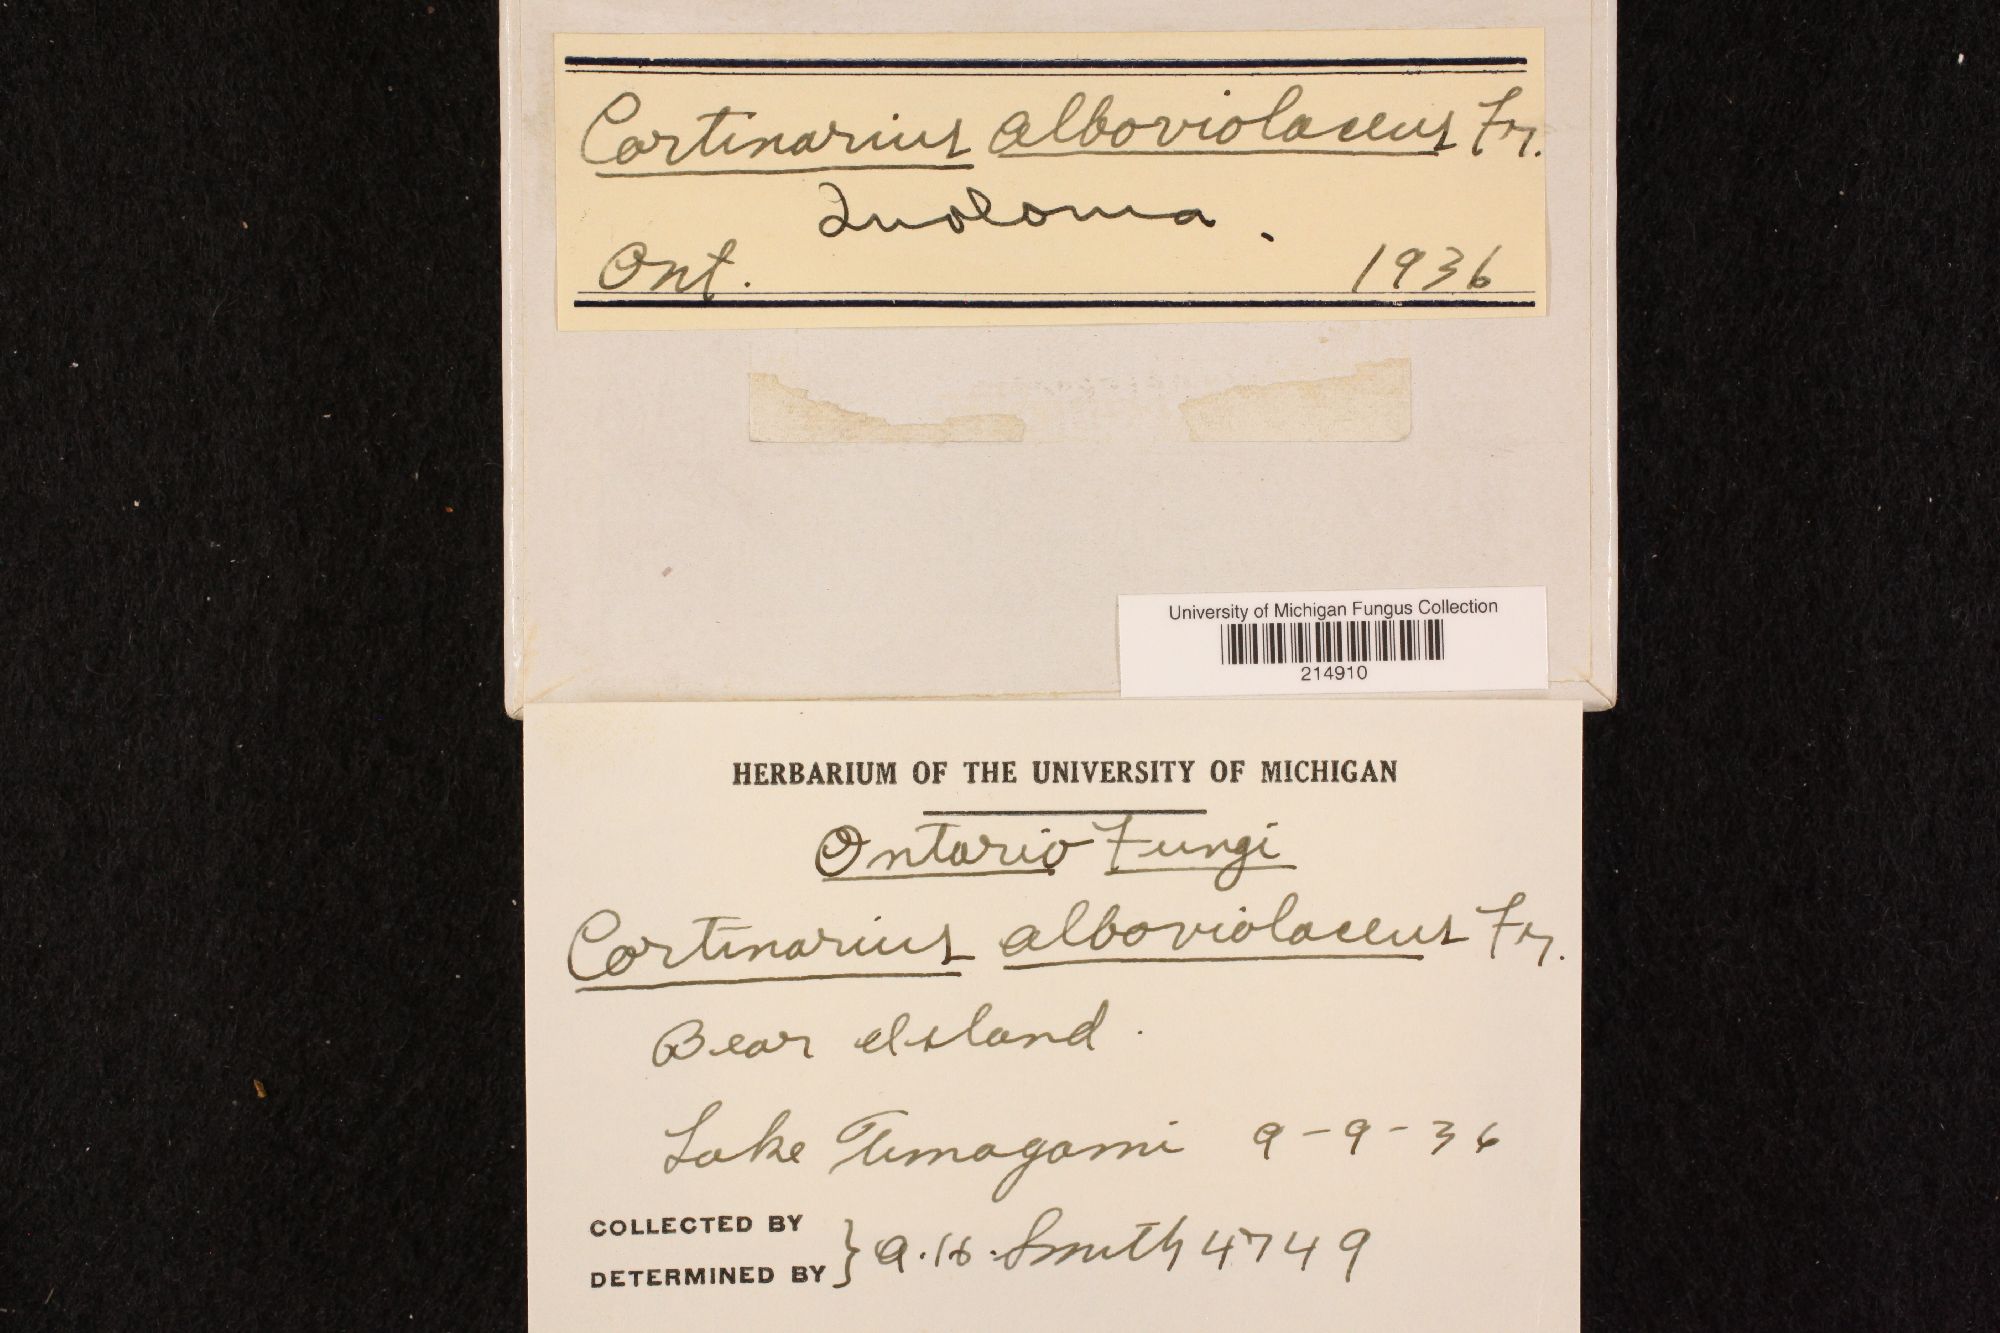 Cortinarius alboviolaceus Fr.
Inoloma.
Ont. 1936
University of Michigan Fungus Collection
214910
HERBARIUM OF THE UNIVERSITY OF MICHIGAN
Ontario Fungi
Cortinarius alboviolaceus Fr.
Bear Island.
Lake Timagami 9-9-36
COLLECTED BY
DETERMINED BY } A.H. Smith 4749